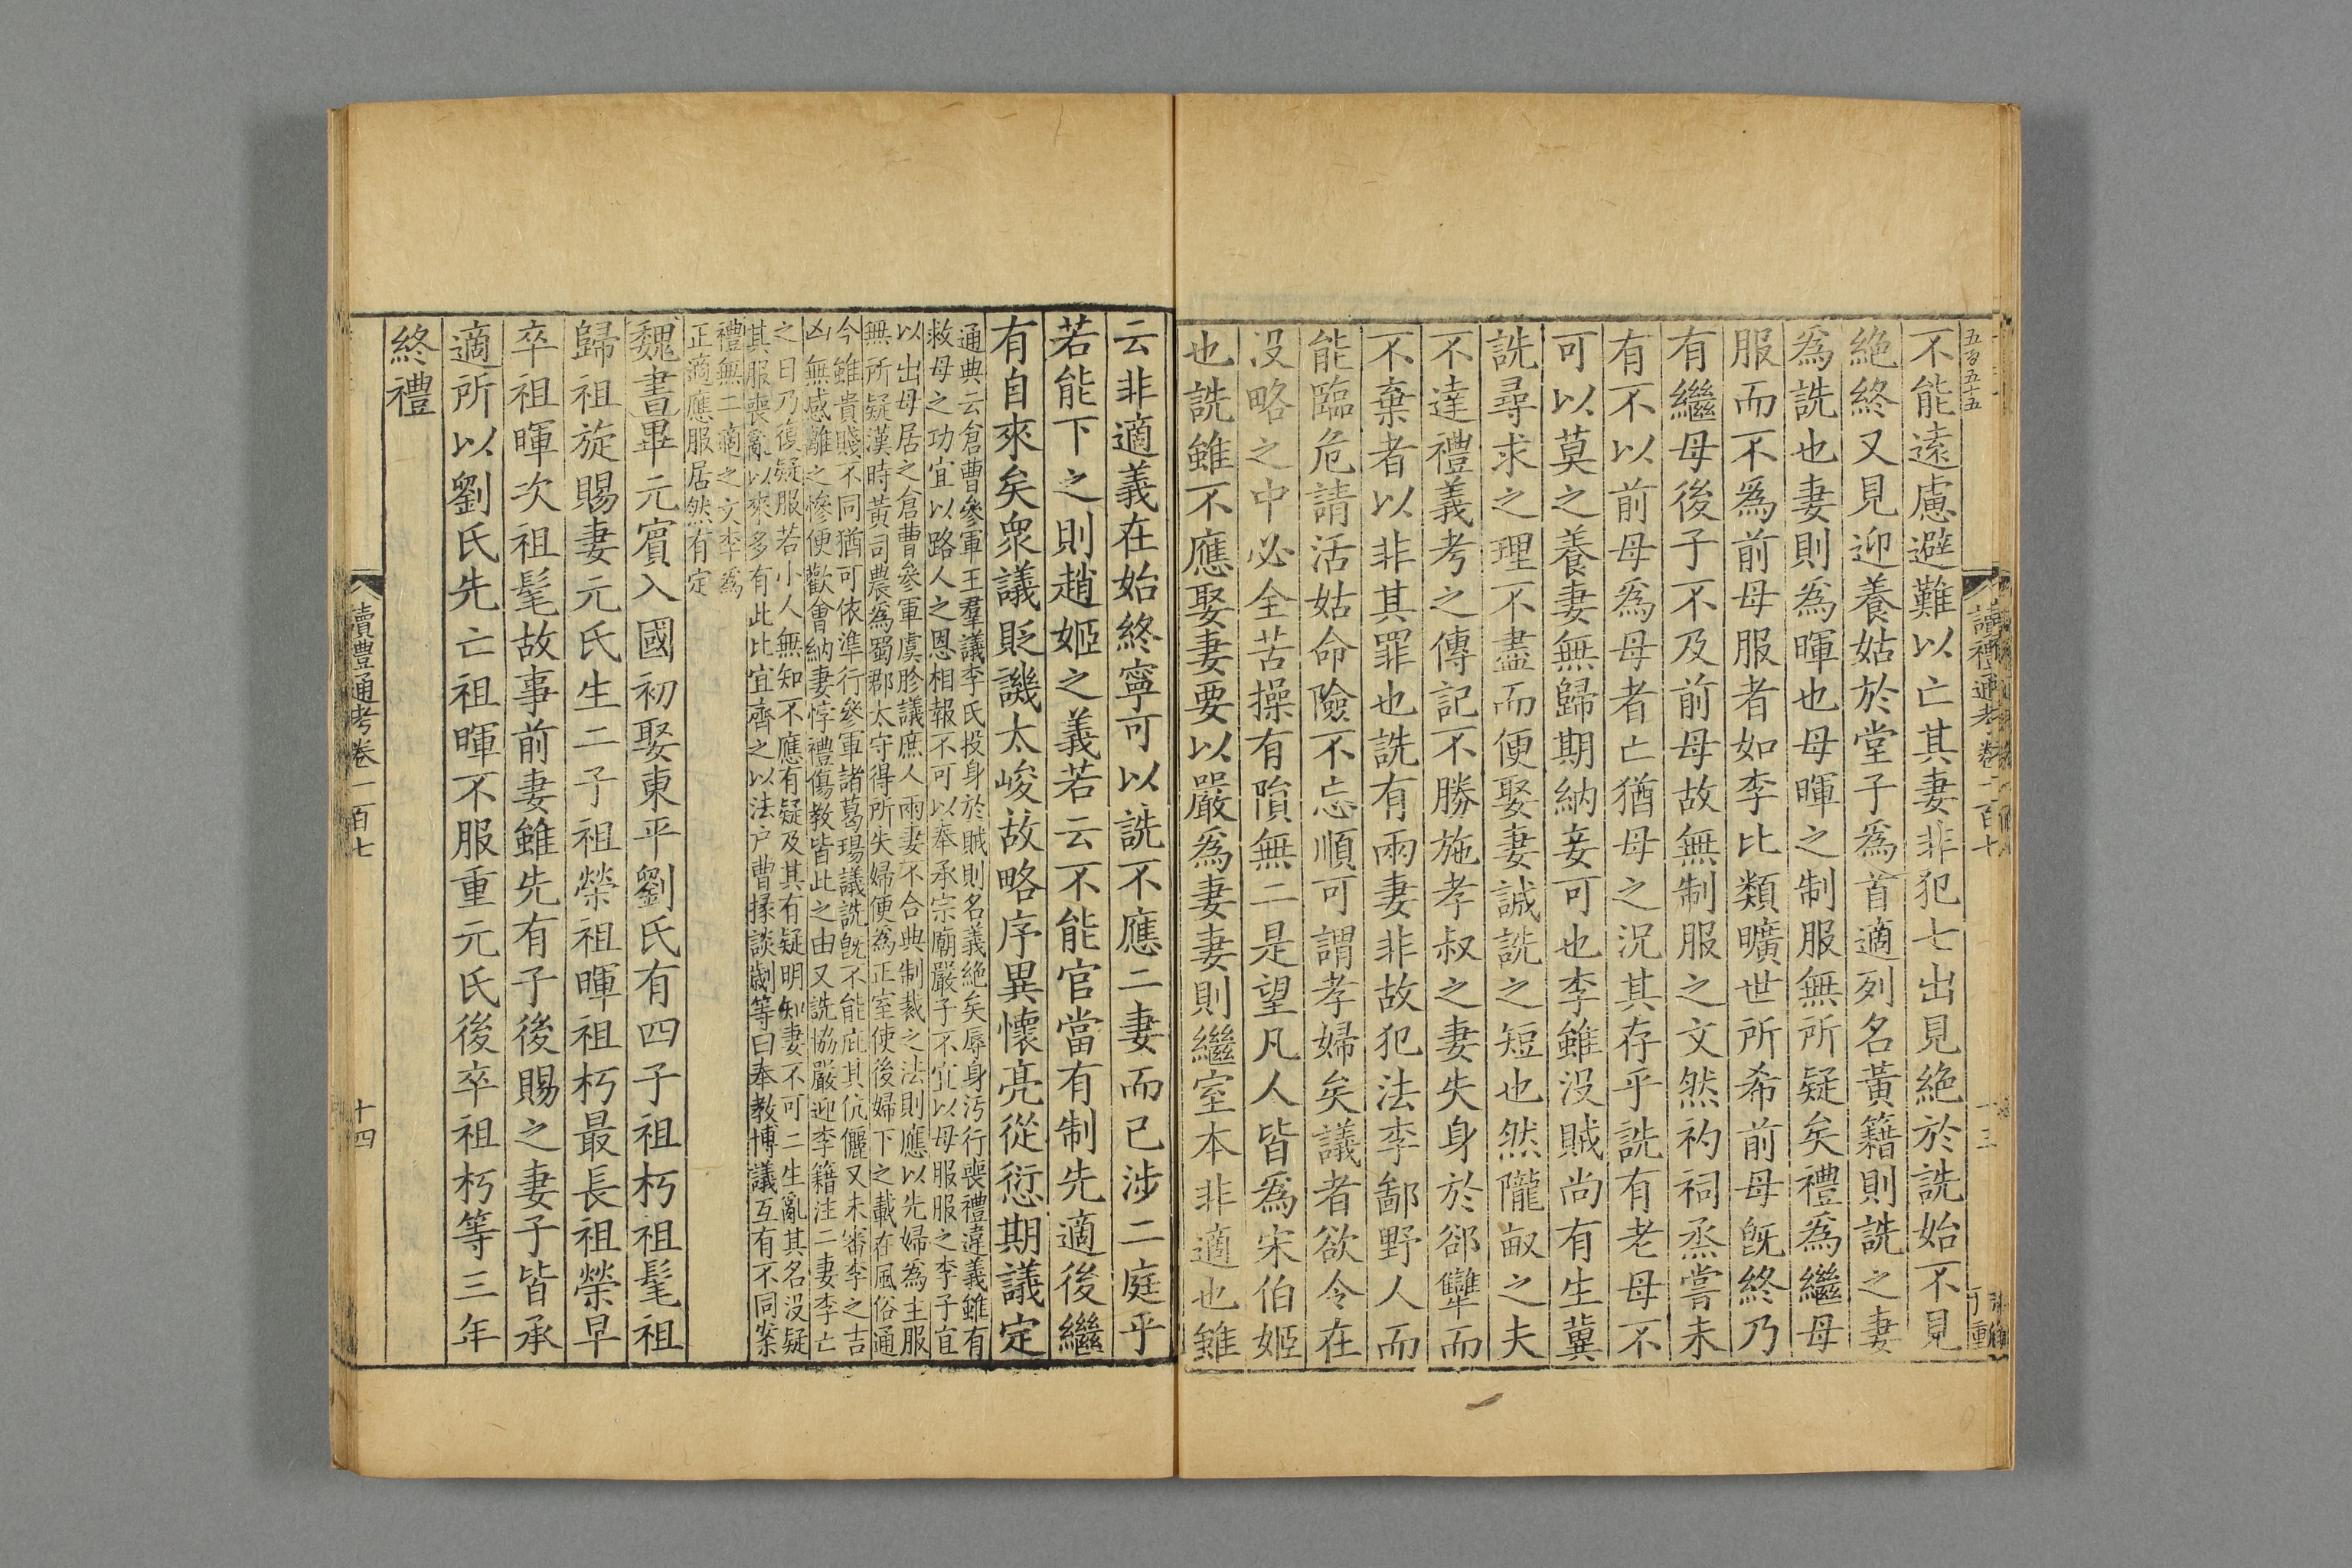 五百五十五
讀禮通考卷一百七
十三
不能遠慮避難以亡其妻非犯七出見絶於詵始不見
絶終又見迎養姑於堂子爲首適列名黃籍則詵之妻
爲詵也妻則爲暉也母暉之制服無所疑矣禮爲繼母
服而不爲前母服者如李比類曠世所希前母旣終乃
有繼母後子不及前母故無制服之文然礿祠烝嘗未
有不以前母爲母者亡猶母之況其存乎詵有老母不
可以莫之養妻無歸期納妾可也李雖沒賊尚有生冀
詵尋求之理不盡而便娶妻誠詵之短也然隴畝之夫
不達禮義考之傳記不勝施孝叔之妻失身於郤犫而
不棄者以非其罪也詵有兩妻非故犯法李鄙野人而
能臨危請活姑命險不忘順可謂孝婦矣議者欲令在
没略之中必全苦操有隕無二是望凡人皆爲宋伯姬
也詵雖不應娶妻要以嚴爲妻妻則繼室本非適也雖
云非適義在始終寧可以詵不應二妻而已涉二庭乎
若能下之則趙姬之義若云不能官當有制先適後繼
有自來矣衆議貶譏太峻故略序異懷亮從愆期議定
通典云倉曹參軍王羣議李氏投身於賊則名義絶矣辱身污行喪禮違義雖有
救母之功宜以路人之恩相報不可以奉承宗廟嚴子不宜以母服服之李子宜
以出母居之倉曹參軍虞眕議庶人兩妻不合典制裁之法則應以先婦爲主服
無所疑漢時黃司農爲蜀郡太守得所失婦便爲正室使後婦下之載在風俗通
今雖貴賤不同猶可依準行參軍諸葛瑒議詵旣不能庇其伉儷又未審李之吉
凶無感離之慘便歡會納妻悖禮傷教皆此之由又詵協嚴迎李籍注二妻李亡
之日乃復疑服若小人無知不應有疑及其有疑明知妻不可二生亂其名没疑
其服喪亂以來多有此比宜齊之以法户曹掾談劌等曰奉教博議互有不同案
禮無二適之文李爲
正適應服居然有定
魏書畢元賓入國初娶東平劉氏有四子祖朽祖髦祖
歸祖旋賜妻元氏生二子祖榮祖暉祖朽最長祖榮早
卒祖暉次祖髦故事前妻雖先有子後賜之妻子皆承
適所以劉氏先亡祖暉不服重元氏後卒祖朽等三年
終禮
讀禮通考卷一百七
十四